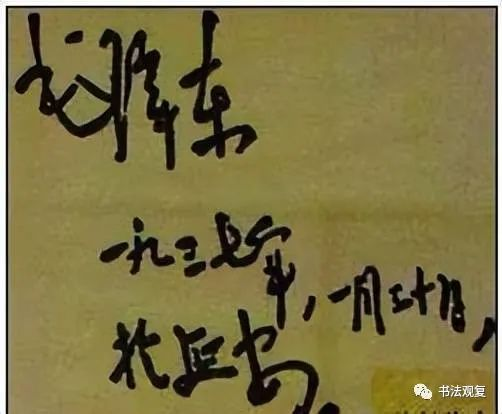 毛泽东
一九三七年，一月三十日，
于延安。
书法观复